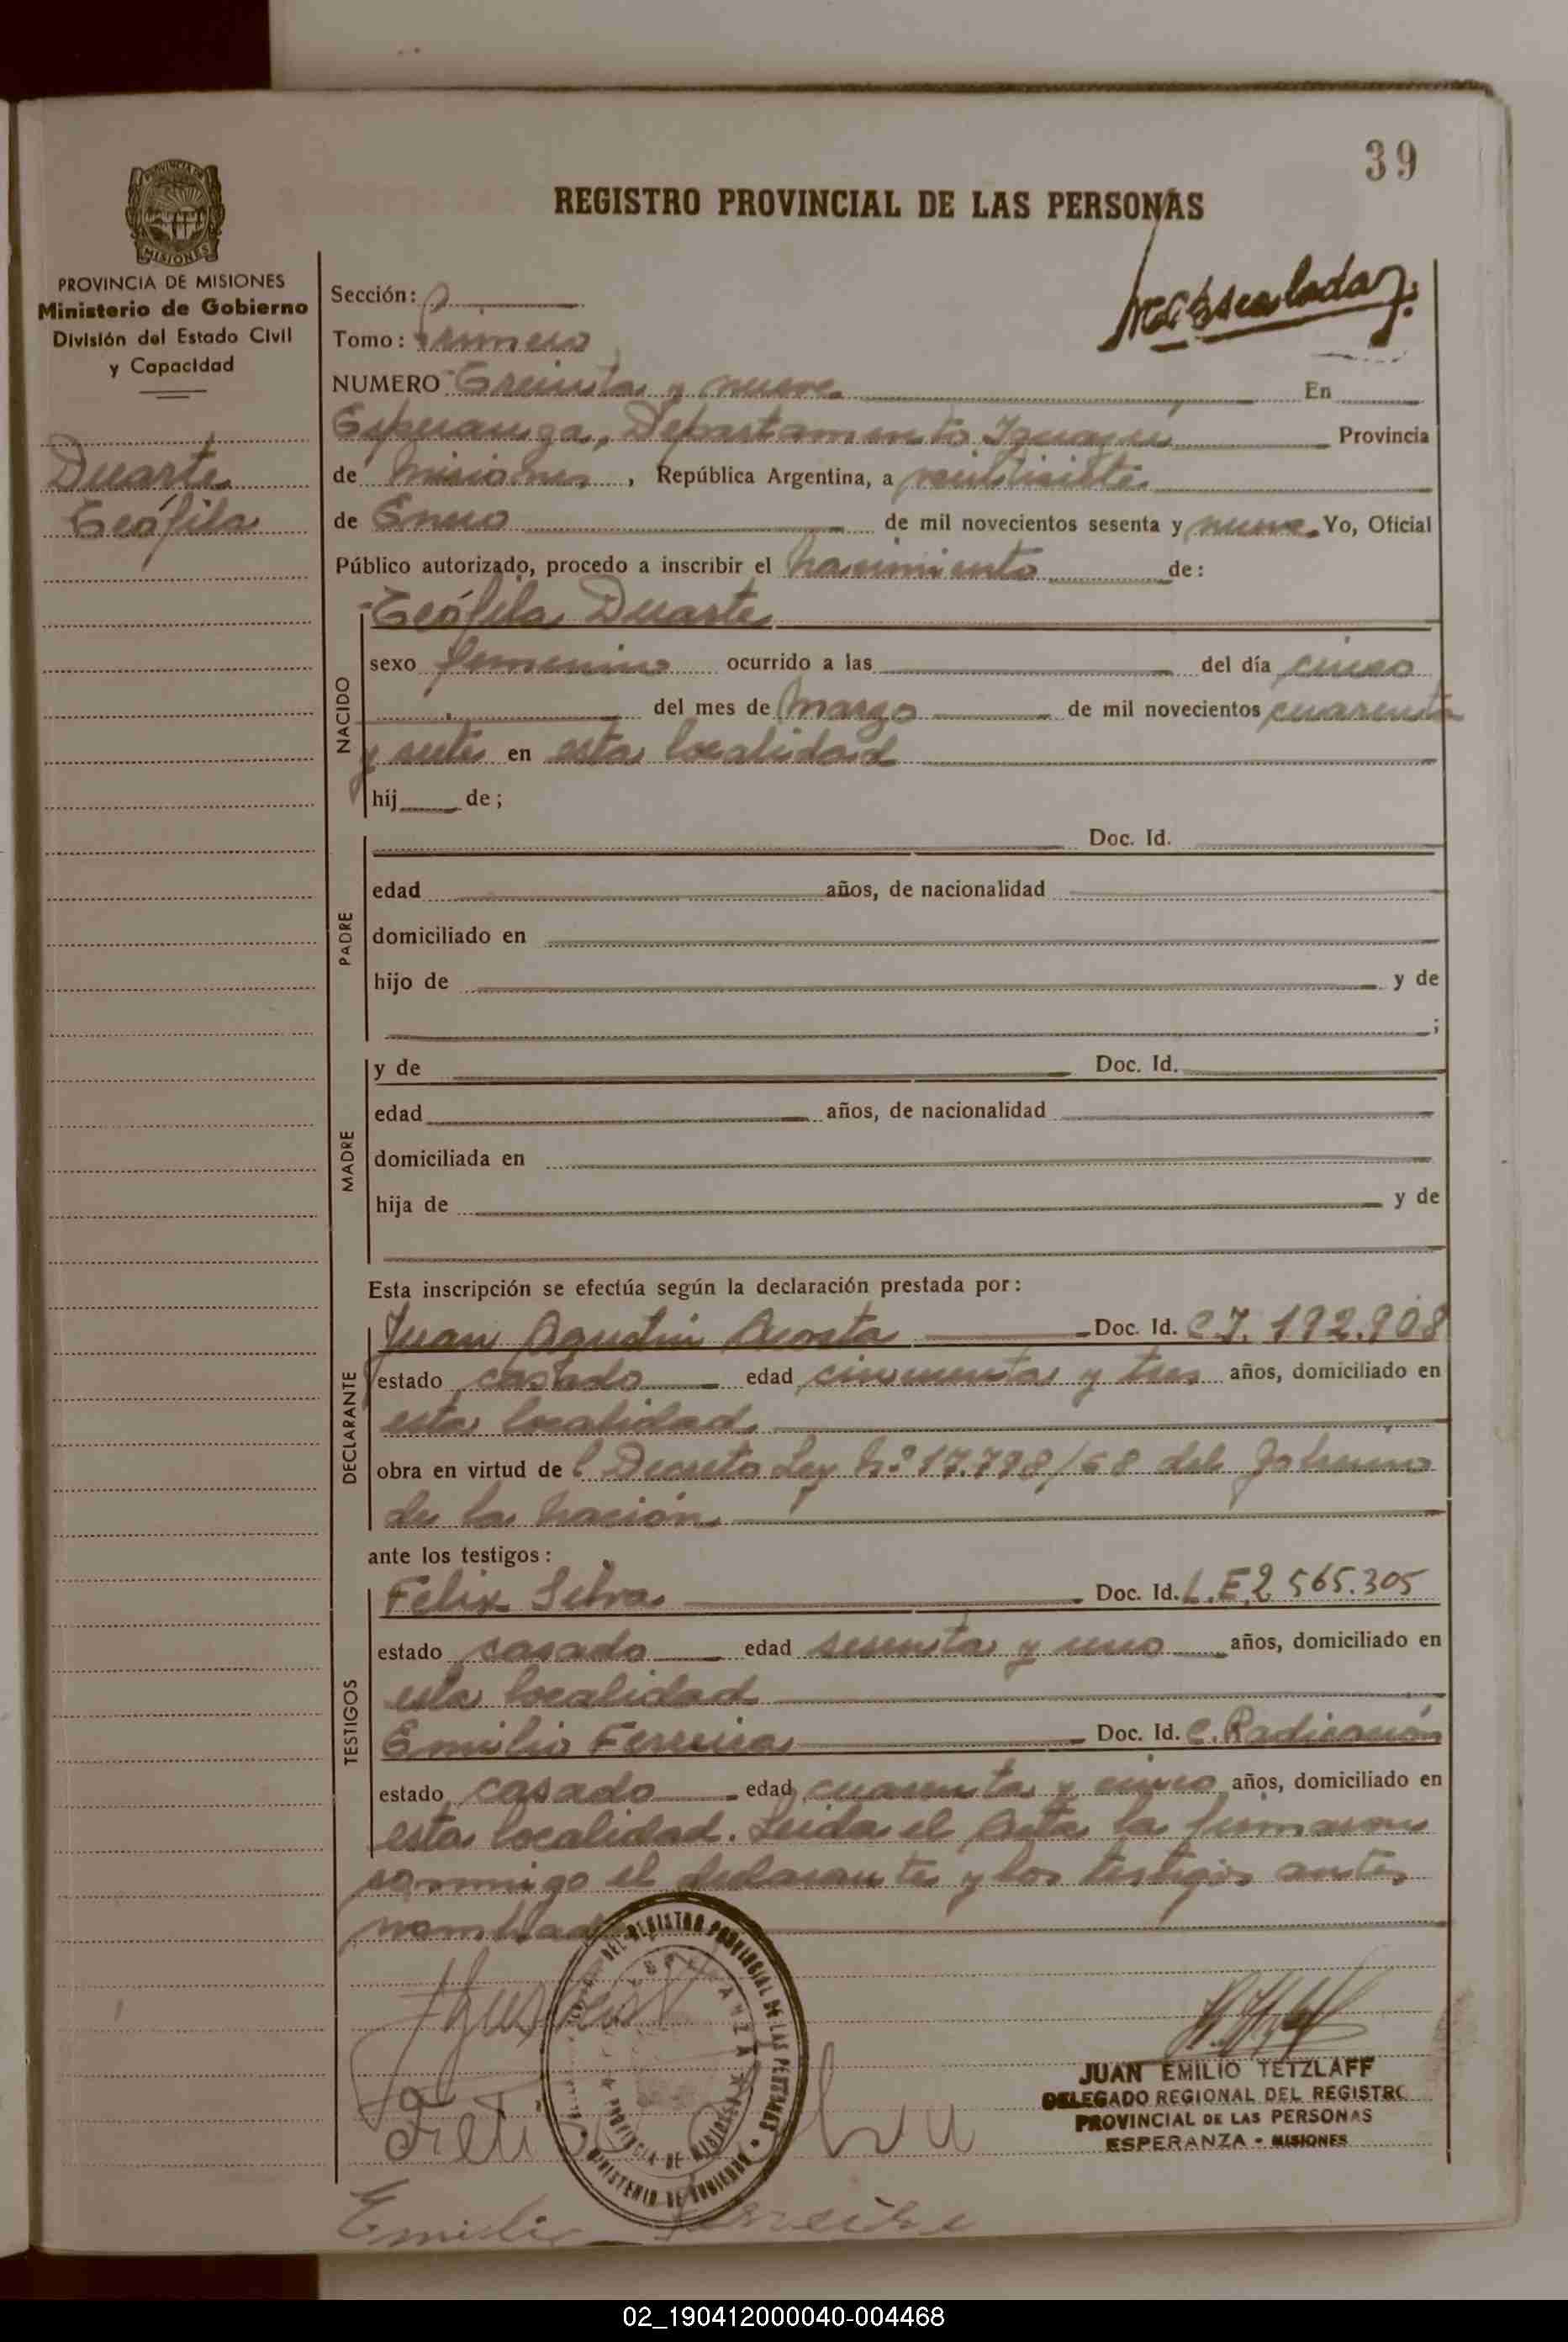 39
REGISTRO PROVINCIAL DE LAS PERSONAS
PROVINCIA DE MISIONES
PROVINCIA DE MISIONES
Ministerio de Gobierno
División del Estado Civil
y Capacidad
Duarte
Teófila
Sección:
Tomo: primero
NUMERO Treinta y nueve En
Esperanza, Departamento Iguazú Provincia
de Misiones, República Argentina, a veintisiete
de Enero de mil novecientos sesenta y nueve. Yo, Oficial
Público autorizado, procedo a inscribir el nacimiento de:
NACIDO
Teófila Duarte
sexo femenino ocurrido a las del día cinco
del mes de Marzo de mil novecientos cuarenta
y siete en esta localidad
hij de;
PADRE
Doc. Id.
edad años, de nacionalidad
domiciliado en
hijo de y de
;
MADRE
y de Doc. Id.
edad años, de nacionalidad
domiciliada en
hija de y de
Esta inscripción se efectúa según la declaración prestada por:
DECLARANTE
Juan Agustín Acosta Doc. Id. C.I. 192.908
estado casado edad cincuenta y tres años, domiciliado en
esta localidad
obra en virtud de l Decreto Ley N.º 17.798/68 del Gobierno
de la Nación
ante los testigos:
TESTIGOS
Felix Silva Doc. Id. L.E. 2.565.305
estado casado edad sesenta y uno años, domiciliado en
esta localidad
Emilio Ferreira Doc. Id. C. Radicación
estado casado edad cuarenta y cinco años, domiciliado en
esta localidad. Leida el Acta la firmaron
conmigo el declarante y los testigos antes
nombrados
DEL REGISTRO PROVINCIAL DE LAS PERSONAS
ESPERANZA
PROVINCIA DE MISIONES
MINISTERIO DE GOBIERNO
JUAN EMILIO TETZLAFF
DELEGADO REGIONAL DEL REGISTRO
PROVINCIAL DE LAS PERSONAS
ESPERANZA - MISIONES
Emilio Ferreira
02_190412000040-004468